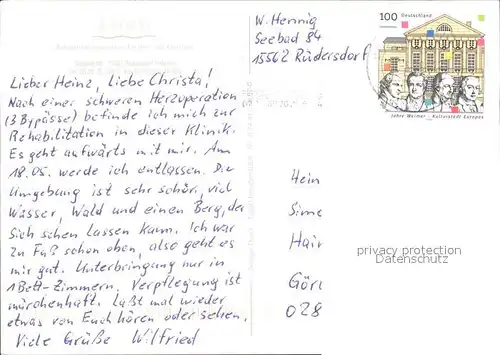 Lieber Heinz, Liebe Christa!
Nach einer schweren Herzoperation
(3 Bypässe) befinde ich mich zur
Rehabilitation in dieser Klinik.
Es geht aufwärts mit mir. Am
18.05. werde ich entlassen. Die
Umgebung ist sehr schön, viel
Wasser, Wald und einen Berg, der
sich sehen lassen kann. Ich war
zu Fuß schon oben, also geht es
mir gut. Unterbringung nur in
1Bett-Zimmern. Verpflegung ist
märchenhaft. Laßt mal wieder
etwas von Euch hören oder sehen.
Viele Grüße Wilfried
W. Hennig
Seebad 84
15562 Rüdersdorf
100 Deutschland
Jahre Weimar - Kulturstadt Europas
Hein
Sime
Hain
Görl
028
privacy protection
Datenschutz